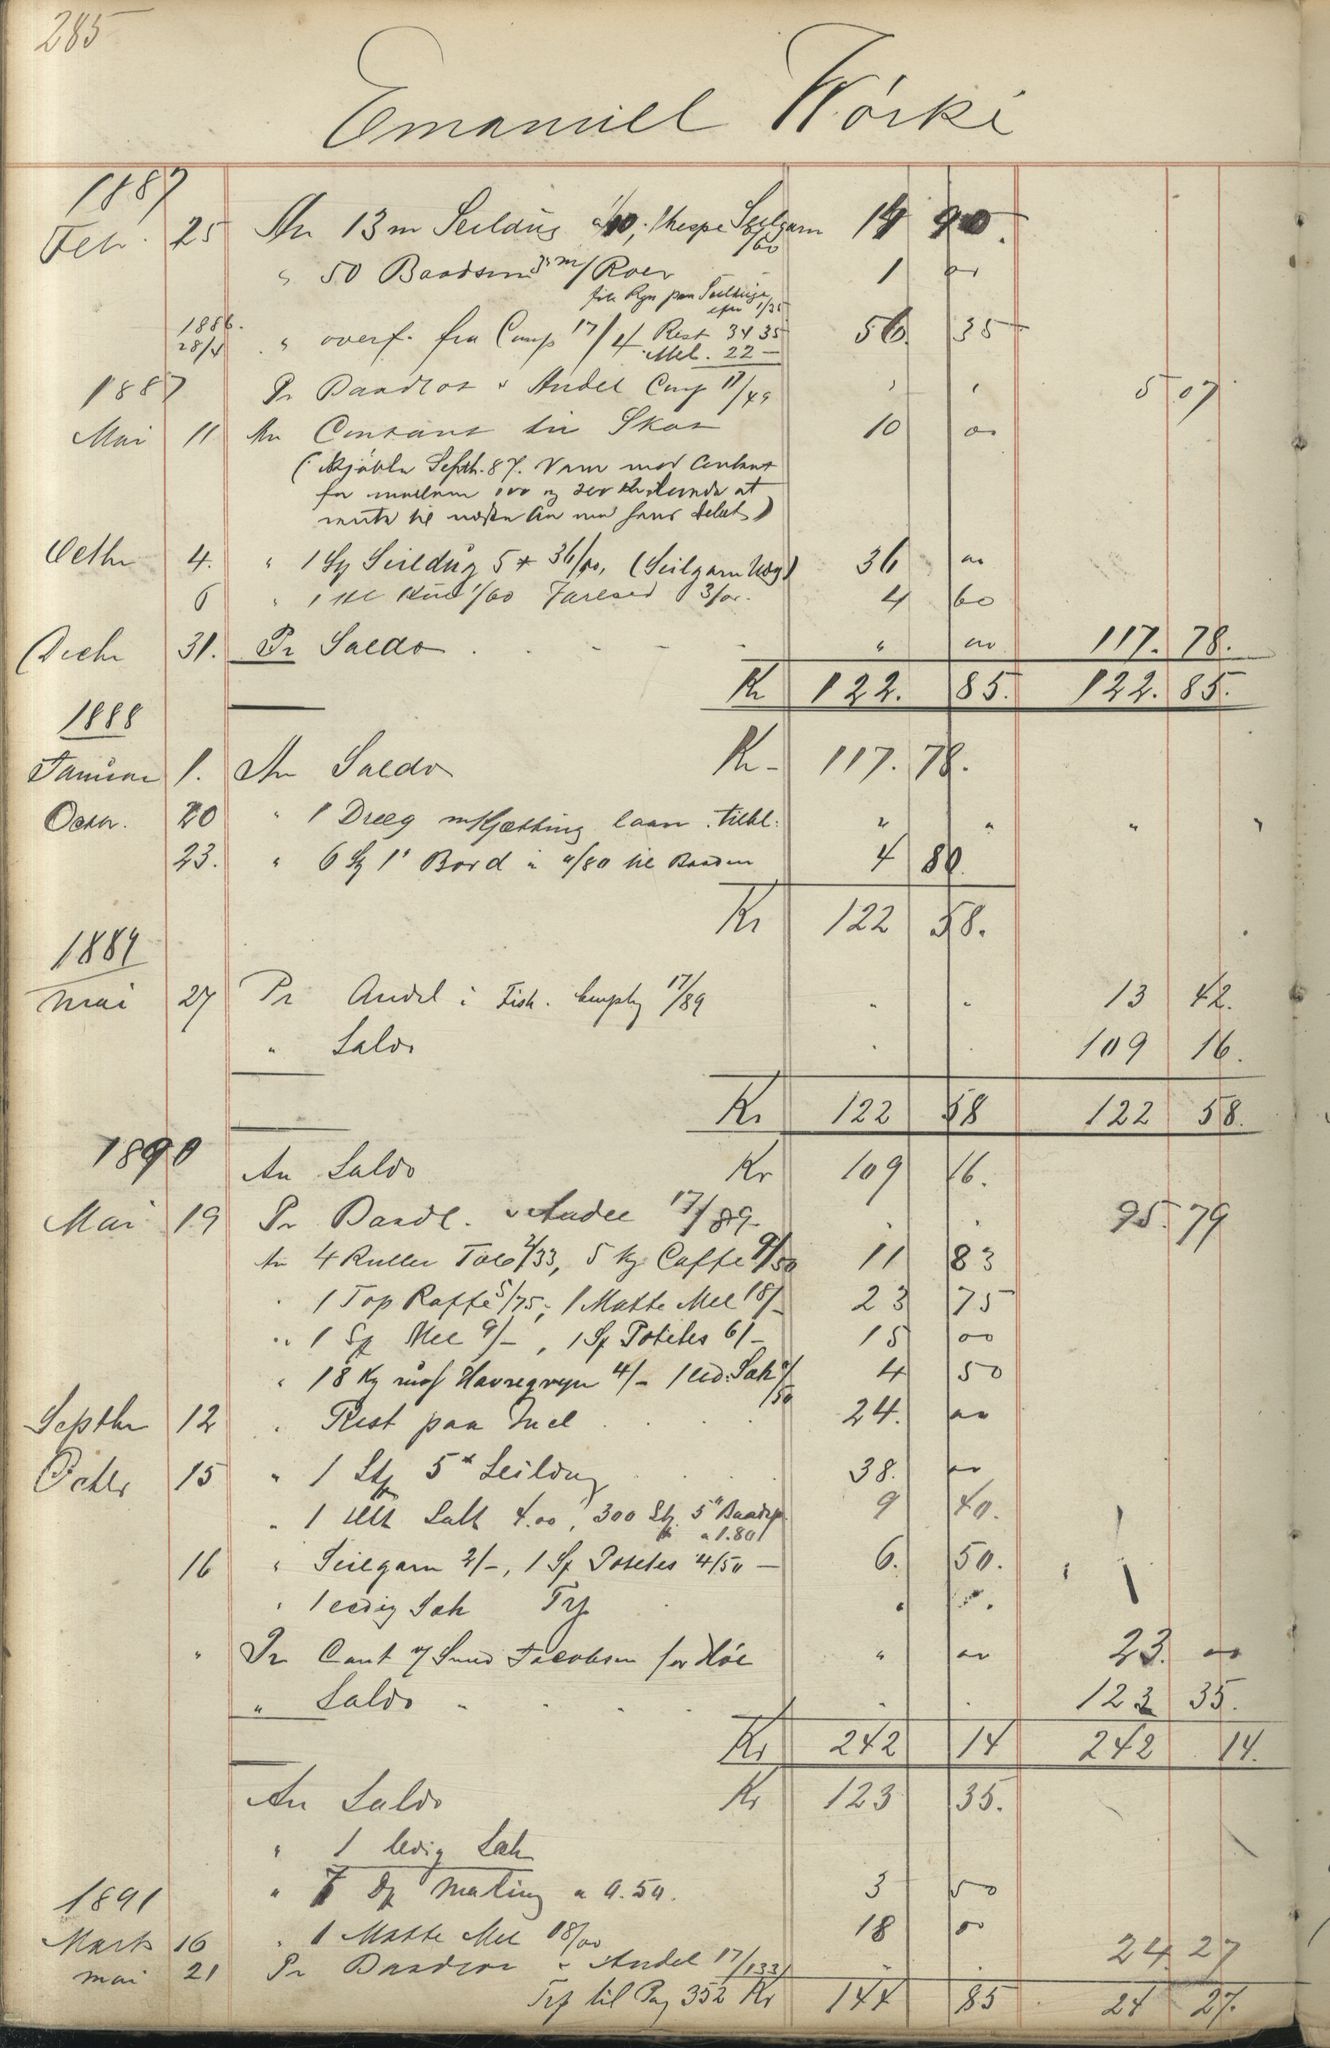 285
Emanuell Wörki
1887
Febr. 25 An 13 m Seildug, 1 hespe Seilgarn /60 14 90.
" 50 Baadsøm 3" m/ Roer 1 00
till Kjøp paa Seildug
1886. 28/4 " overf. fra Comp 17/4 Rest 34 35 56. 35
Mel. 22 —
1887 Pr Baadlot & Andel Comp 17/49 " " 5 07
Mai 11 An Contant til Skat 10 00
Septbr. 87. Vare mod Contant
for mellem og
til næste Aar)
Octbr 4. " 1 St Seildug 5* 36/00, (Seilgarn) 36 00
6 " 1 1/60 3/00. 4 60
Decbr 31. Pr Saldo " 00 117. 78.
Kr 122. 85. 122. 85.
1888
Januar 1. An Saldo Kr - 117. 78.
Octbr. 20 " 1 Dreg m/Kjætting laan. tilbl. " " " "
23. " 6 St 1" Bord a "/80 til Baaden 4 80
Kr 122 58.
1889
Mai 27 Pr Andel i Fisk. Compy 17/89 " " 13 42.
" Saldo 109 16.
Kr 122 58 122 58.
1890
An Saldo Kr 109 16.
Mai 19 Pr Baadl. & Andel 17/89 95. 79
An 4 Ruller Tob 2/33, 5 kg Caffe 9/50 11 83
" 1 Top Raffe 5/75, 1 Matte Mel 18/- 23 75
" 1 Sk Mel 9/-, 1 Sk Potetes 6/- 15 00
" 18 Kg Havregryn 4/- 1 led. Sæk "/50 4 50
Septbr 12 " Rest paa Mel 24. 00
Octbr 15 " 1 Stk 5* Seildug 38. 00
" 1 Salt 4.00, 300 Stk 5" Baads. a 1.80 9 40.
16 " Seilgarn 2/-, 1 Sk Potetes 4/50 — 6. 50.
" 1 ledig Sæk
" Pr Cont Jacobsen for Høe " 00 23. 00
" Saldo 123 35.
Kr 242 14 242 14.
An Saldo Kr 123 35.
" 1 ledig Sæk
1891 " 7 Dg Mating a 0.50. 3 50
Marts 16 " 1 Matte Mel 18/00 18 00
Mai 21 Pr Baadlot & Andel 17/133 24. 27
Trf til Pag 352 Kr 144 85 24 27.